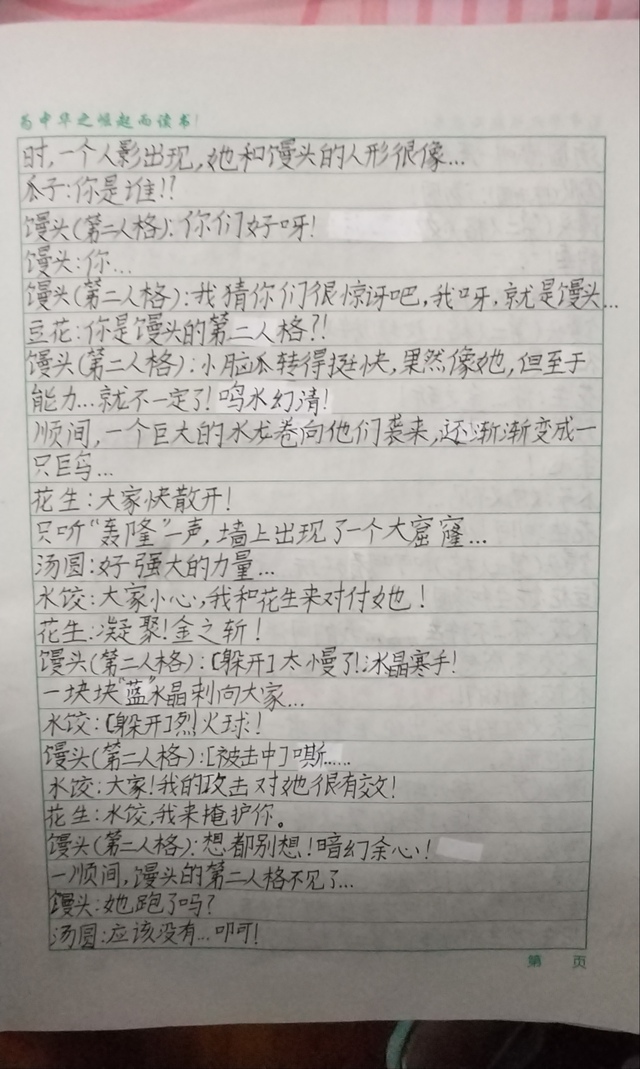 为中华之崛起而读书!
时,一个人影出现,她和馒头的人形很像...
瓜子:你是谁!?
馒头(第二人格):你们好呀!
馒头:你...
馒头(第二人格):我猜你们很惊讶吧,我呀,就是馒头...
豆花:你是馒头的第二人格?!
馒头(第二人格):小脑瓜转得挺快,果然像她,但至于
能力...就不一定了!鸣水幻清!
顺间,一个巨大的水龙卷向他们袭来,还渐渐变成一
只巨鸟...
花生:大家快散开!
只听“轰隆”一声,墙上出现了一个大窟窿...
汤圆:好强大的力量...
水饺:大家小心,我和花生来对付她!
花生:凝聚!金之斩!
馒头(第二人格):[躲开]太慢了!冰晶寒手!
一块块“蓝”水晶刺向大家...
水饺:[躲开]烈火球!
馒头(第二人格):[被击中]嘶......
水饺:大家!我的攻击对她很有效!
花生:水饺,我来掩护你。
馒头(第二人格):想都别想!暗幻余心!
一顺间,馒头的第二人格不见了...
馒头:她跑了吗?
汤圆:应该没有...叩可!
第 页